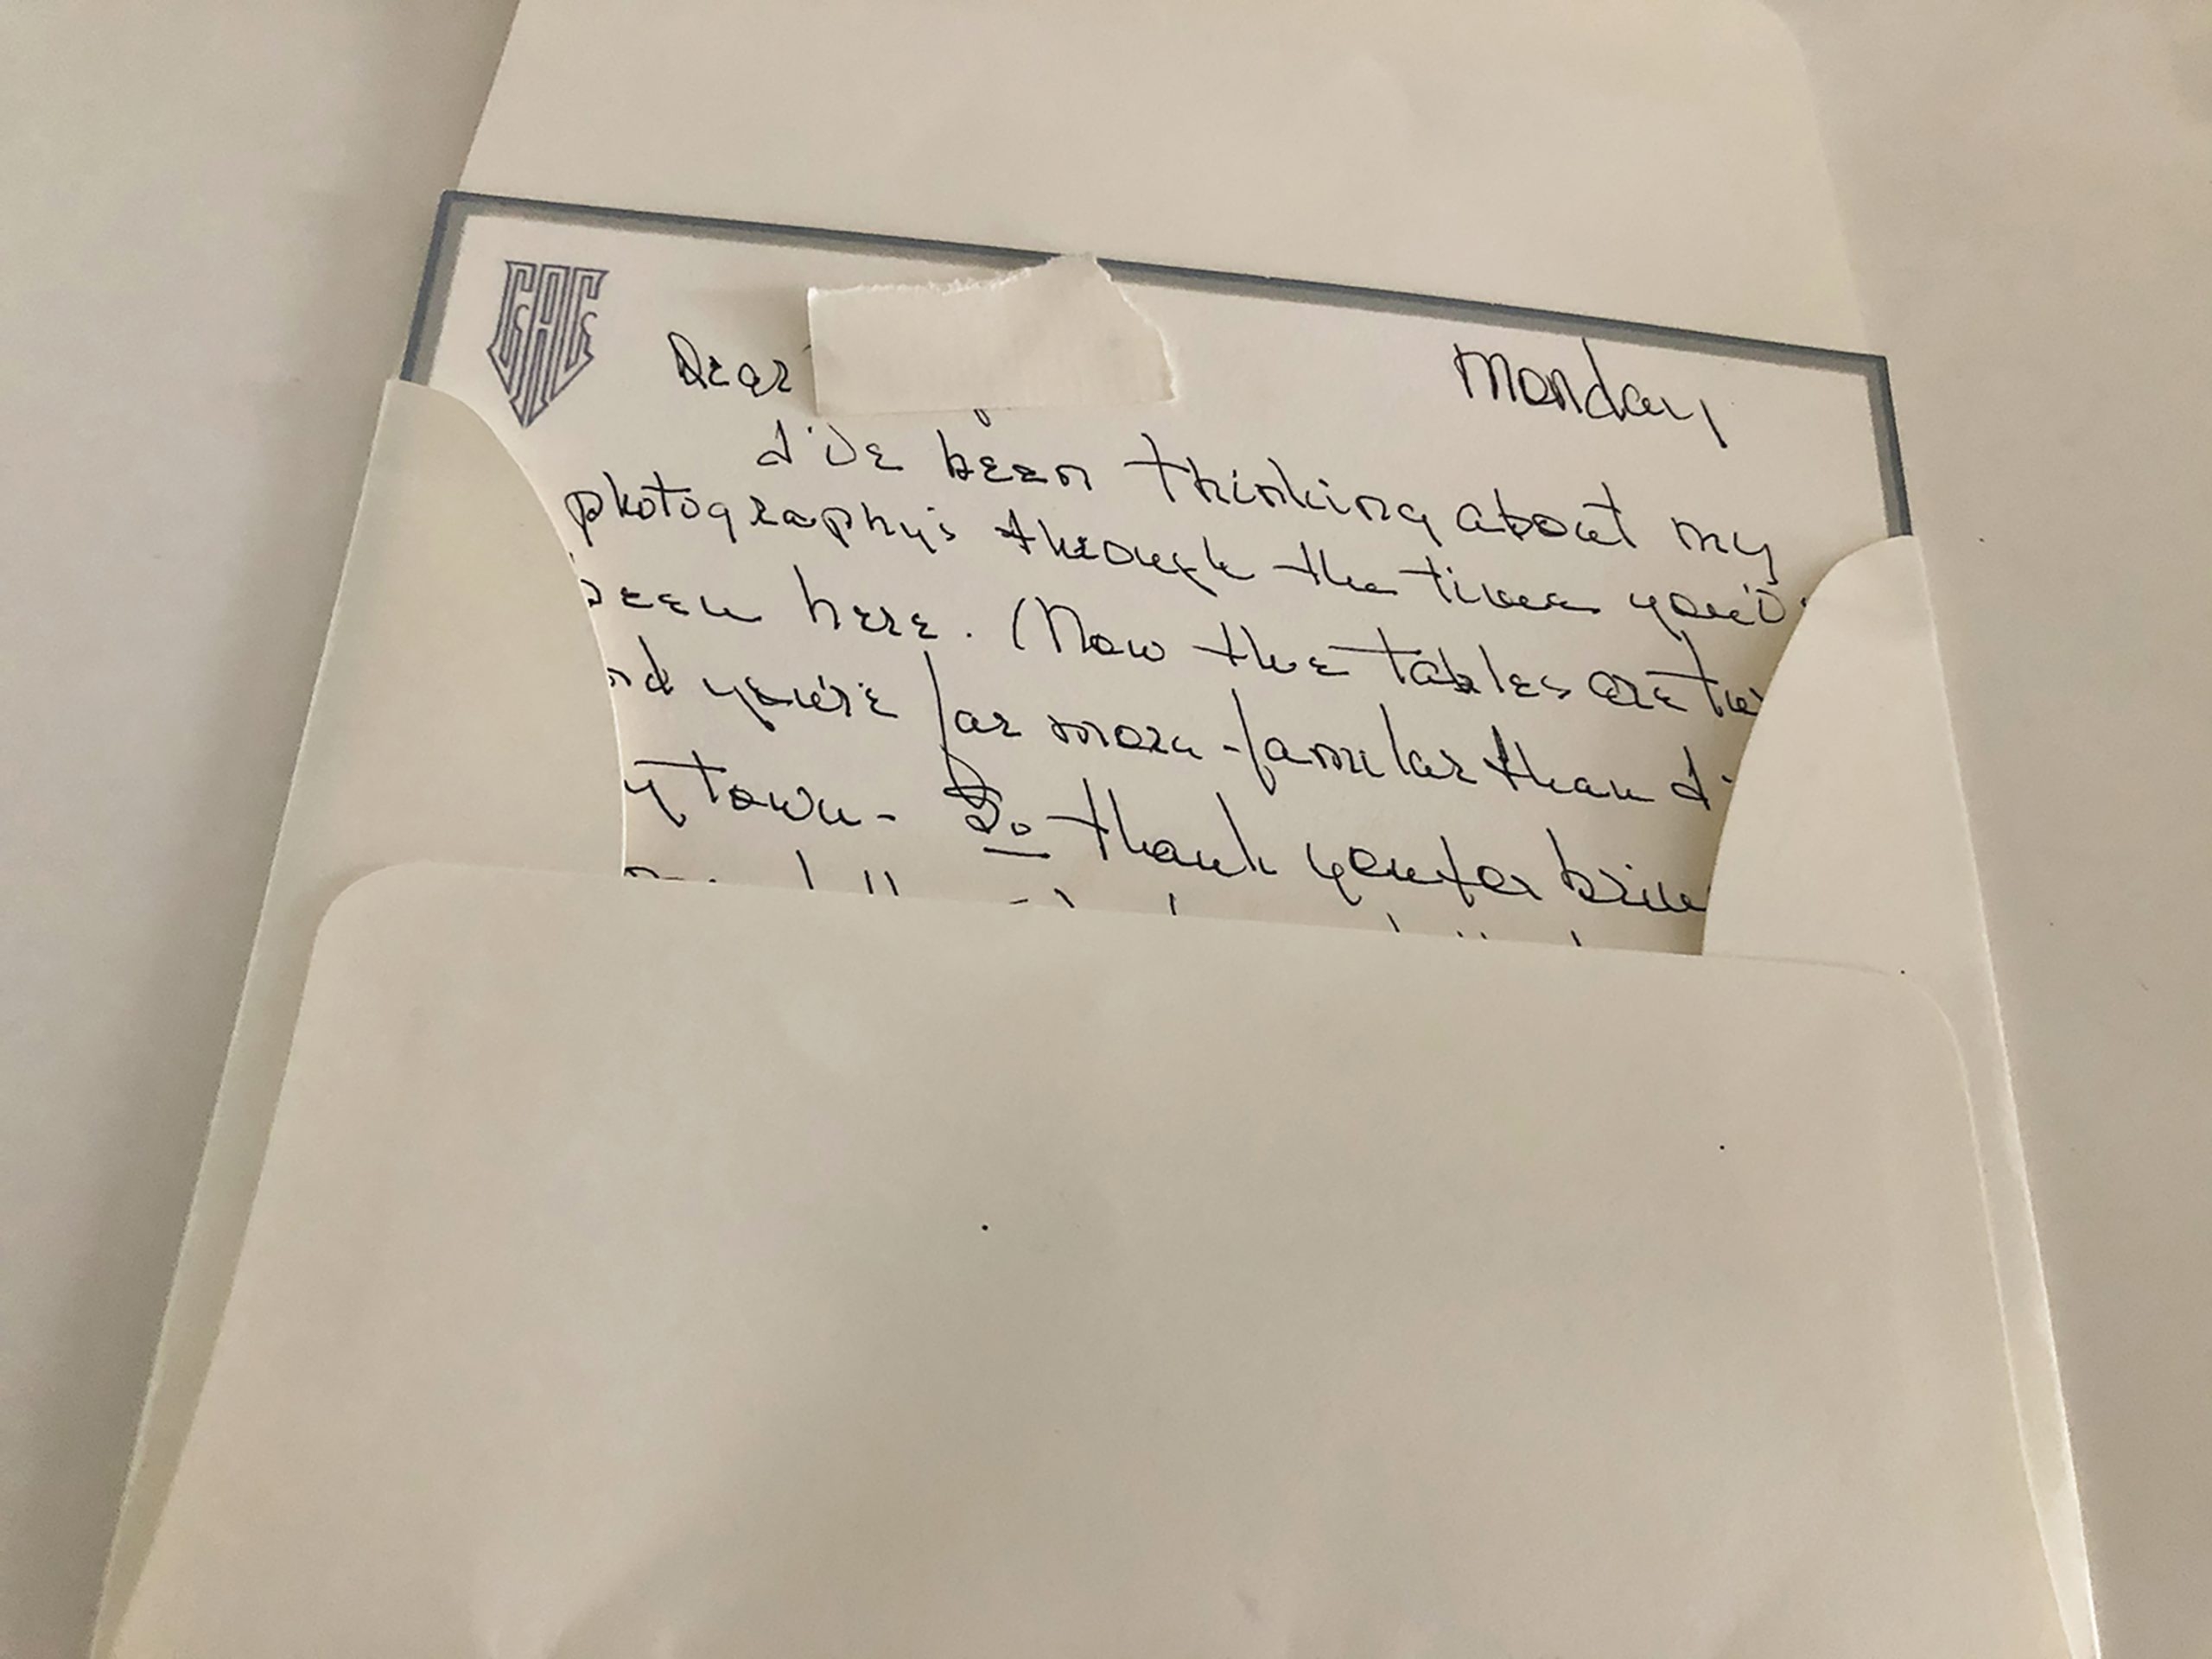 Dear
Monday
I've been thinking about my
photography's through the times you'v
been here. (Now the tables are tur
nd you're far more familar than I
y town - So thank you for brin